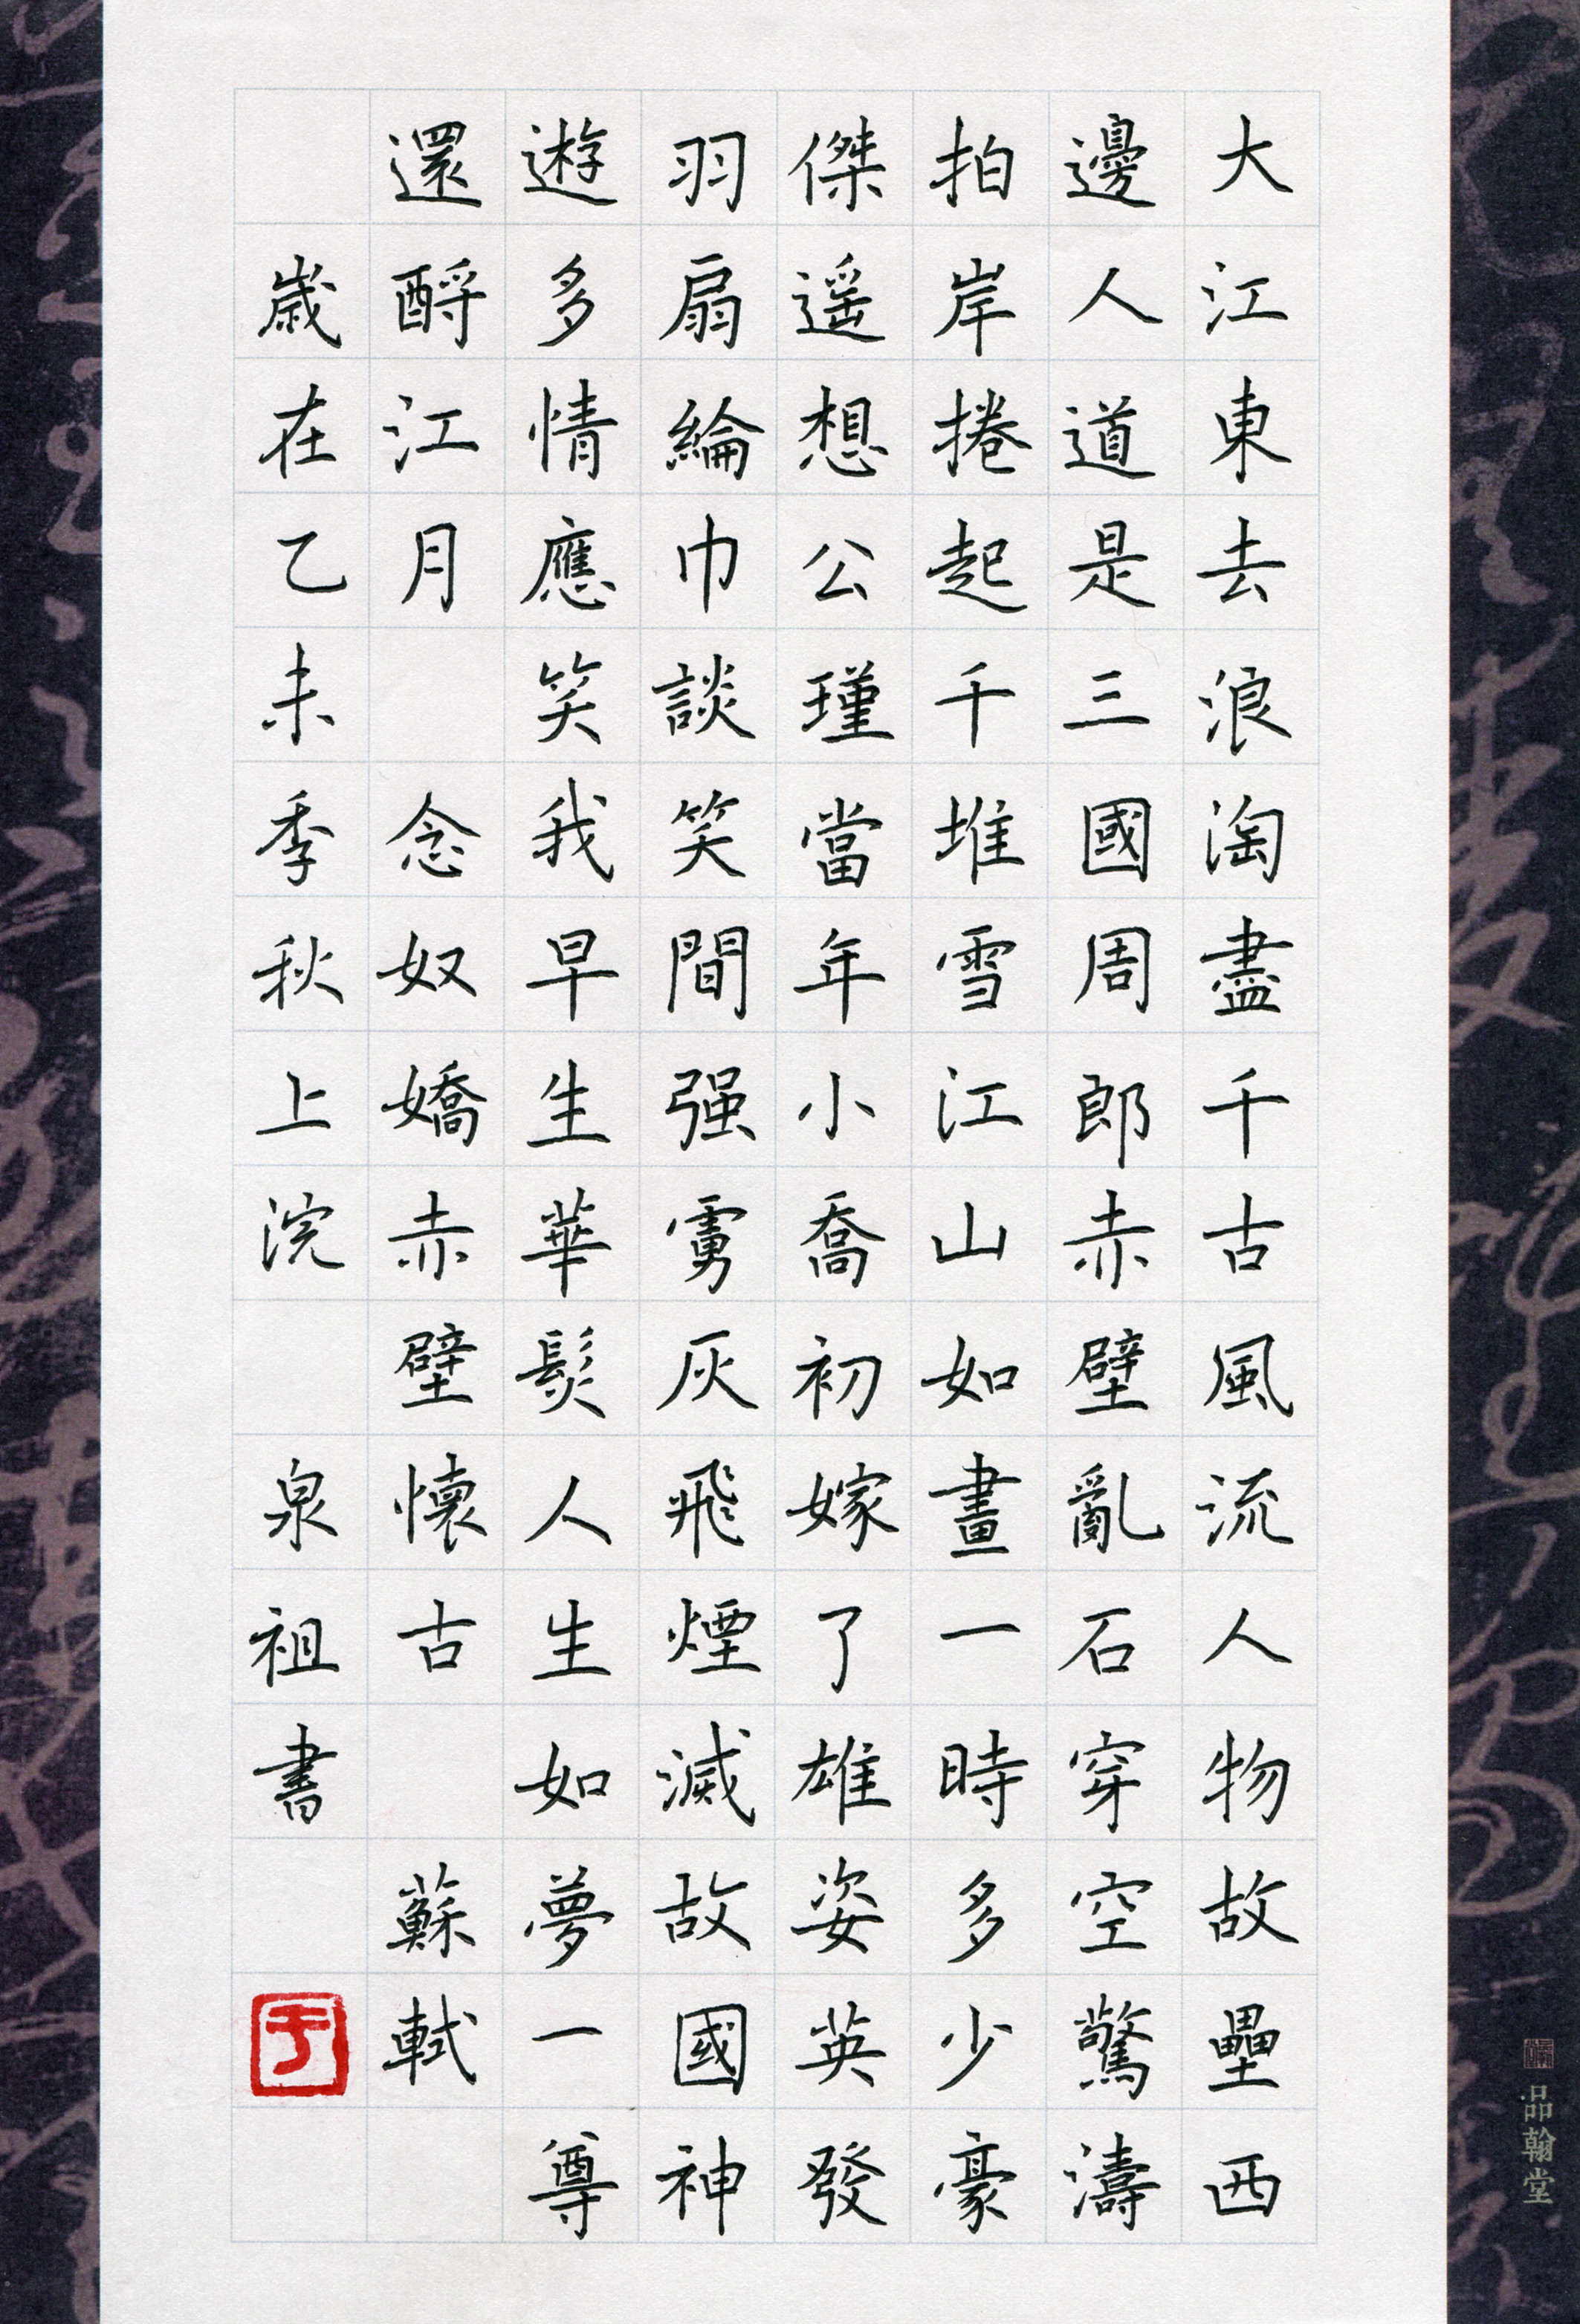 大江東去浪淘盡千古風流人物故壘西
邊人道是三國周郎赤壁亂石穿空驚濤
拍岸捲起千堆雪江山如畫一時多少豪
傑遥想公瑾當年小喬初嫁了雄姿英發
羽扇綸巾談笑間强虜灰飛煙滅故國神
遊多情應笑我早生華髮人生如夢一尊
還酹江月 念奴嬌赤壁懷古 蘇軾
歲在乙未季秋上浣 泉祖書
于
品翰堂